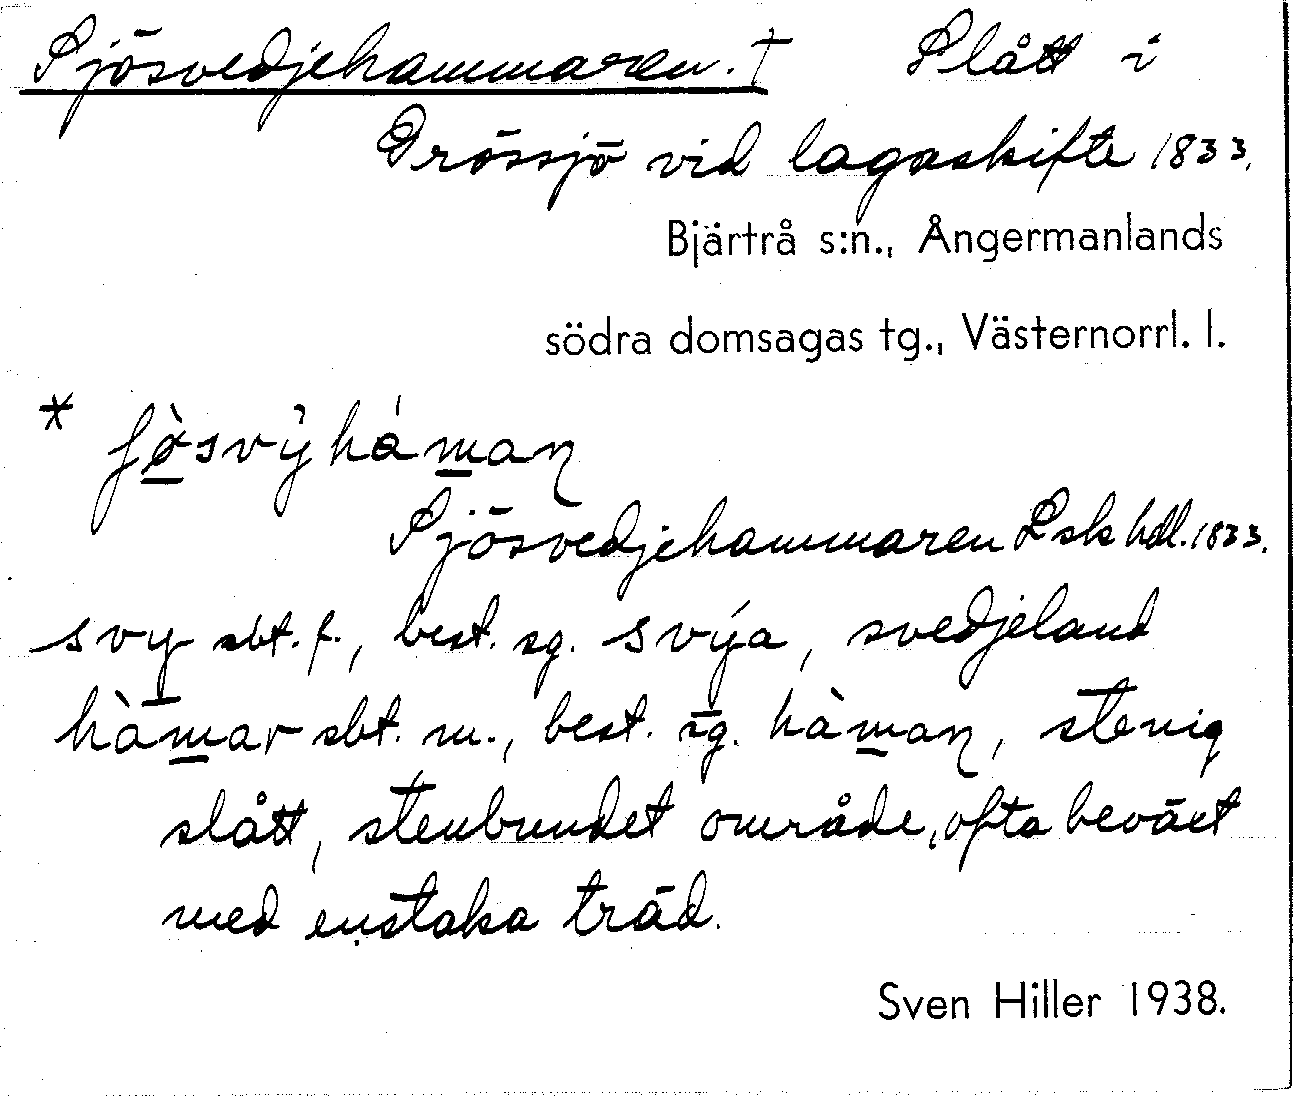 Sjösvedjehammaren. † Slått i
Grössjö vid lagaskifte 1833.
Bjärtrå s:n., Ångermanlands
södra domsagas tg., Västernorrl. l.
*
Sjösvedjehammaren Lsk hdl. 1833.
svy sbt. f., best. sg. svýa, svedjeland
hàmar sbt. m., best. sg. hàmaɳ, stenig
slått, stenbundet område, ofta beväxt
med enstaka träd.
Sven Hiller 1938.